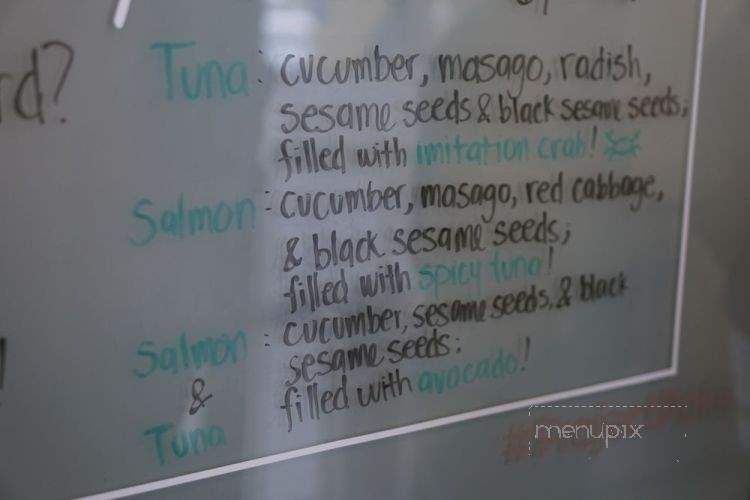 rd?
Tuna: cucumber, masago, radish,
sesame seeds & black sesame seeds;
filled with imitation crab!
Salmon: cucumber, masago, red cabbage,
& black sesame seeds;
filled with spicy tuna!
Salmon & Tuna: cucumber, sesame seeds, & black
sesame seeds;
filled with avocado!
menupix